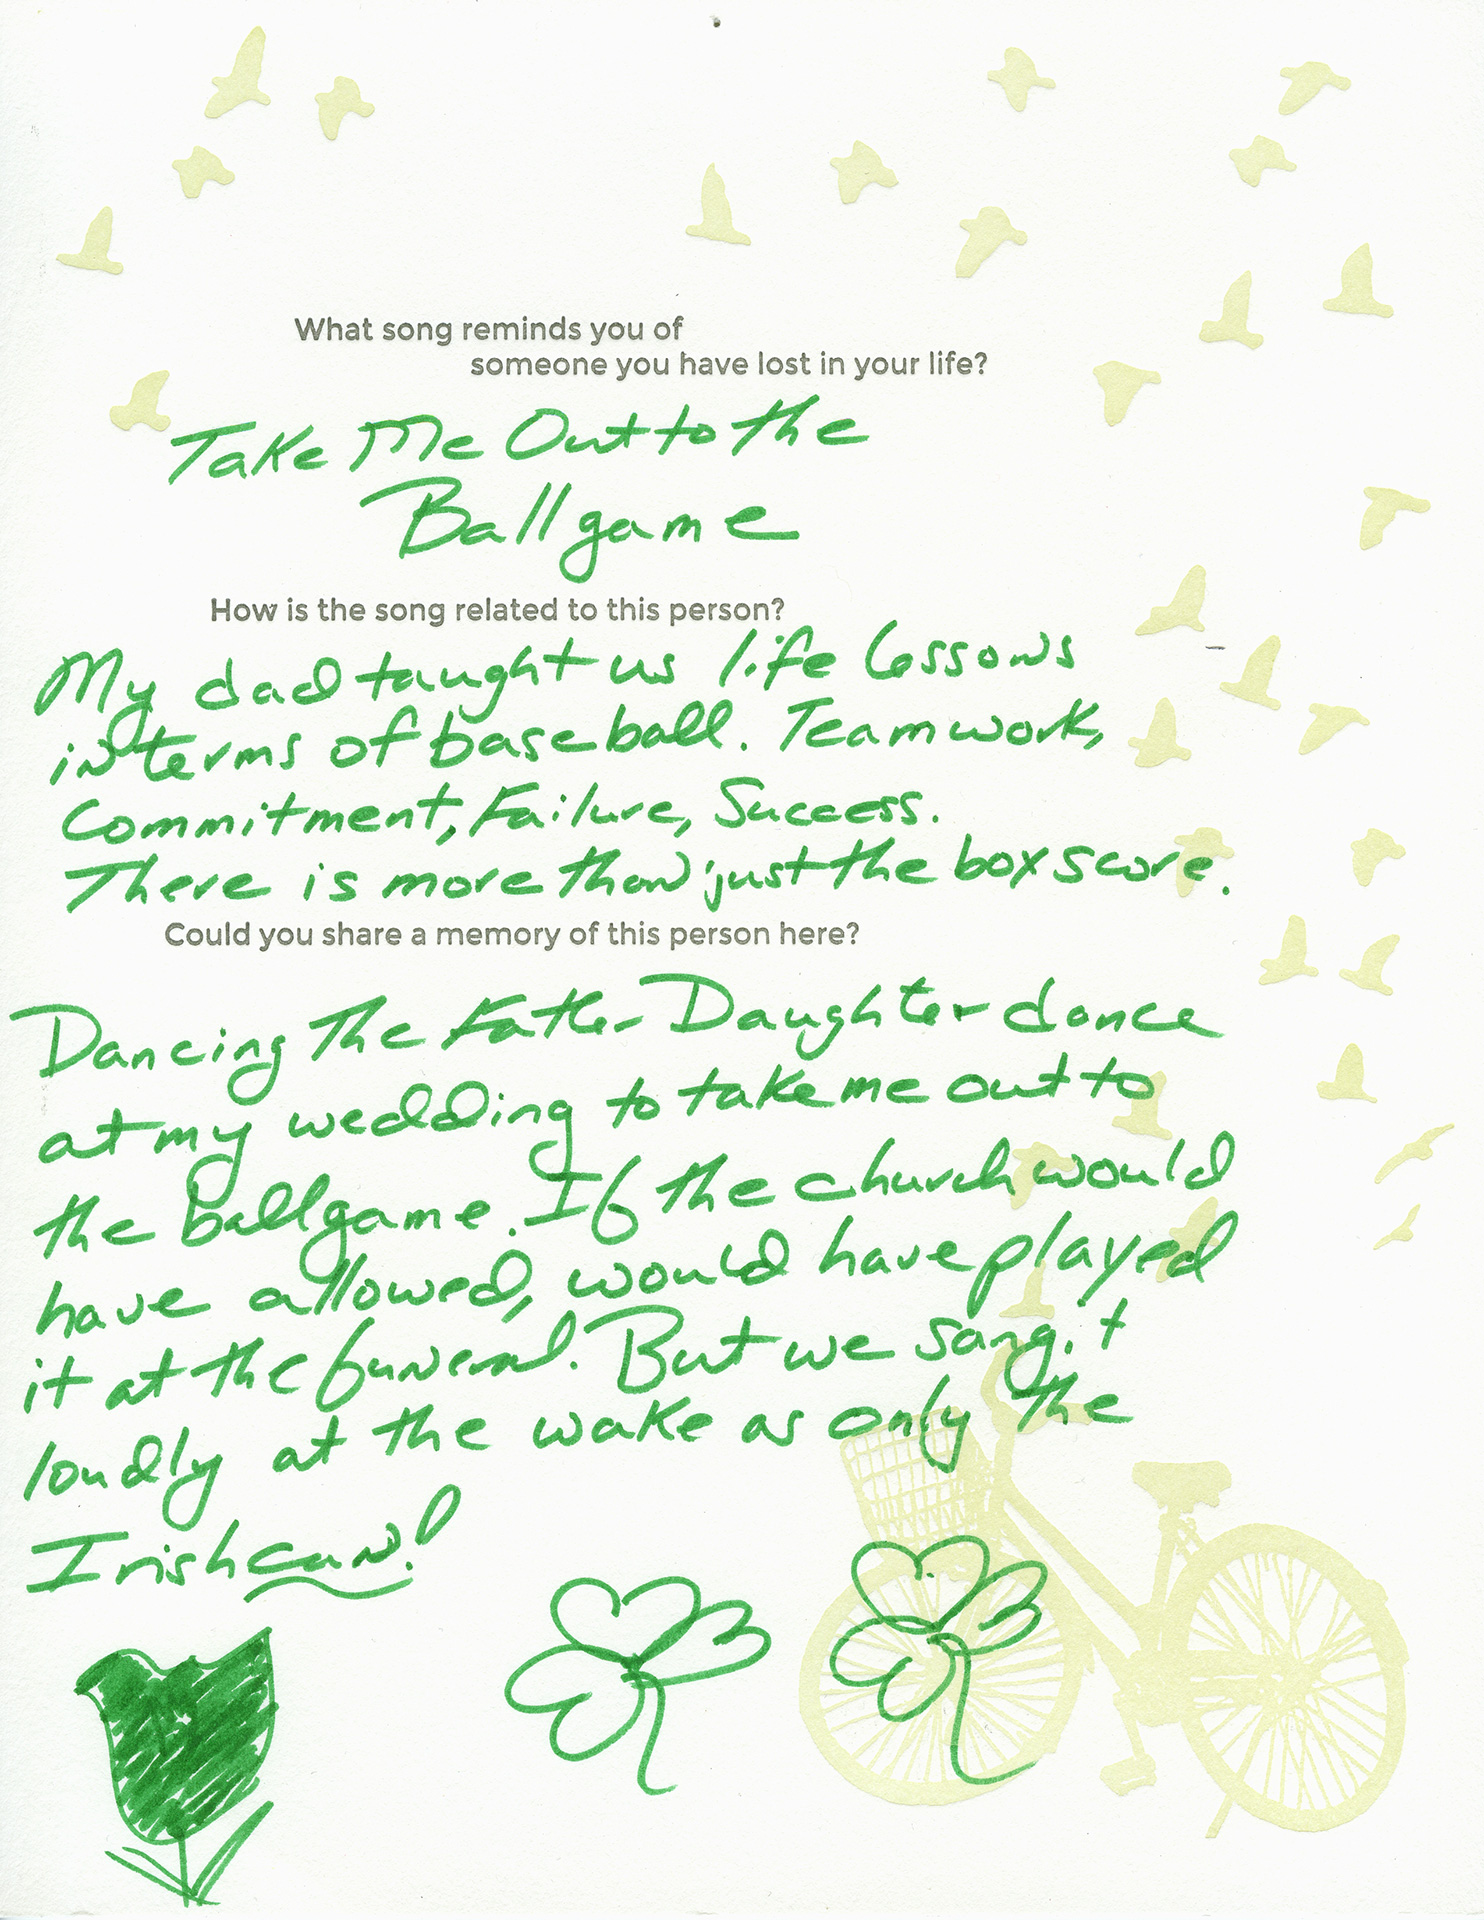 What song reminds you of
someone you have lost in your life?
Take Me Out to the
Ballgame
How is the song related to this person?
My dad taught us life lessons
in terms of baseball. Teamwork,
Commitment, Failure, Success.
There is more than just the box score.
Could you share a memory of this person here?
Dancing the Father Daughter dance
at my wedding to take me out to
the ballgame. If the church would
have allowed, would have played
it at the funeral. But we sang it
loudly at the wake as only the
Irish can!